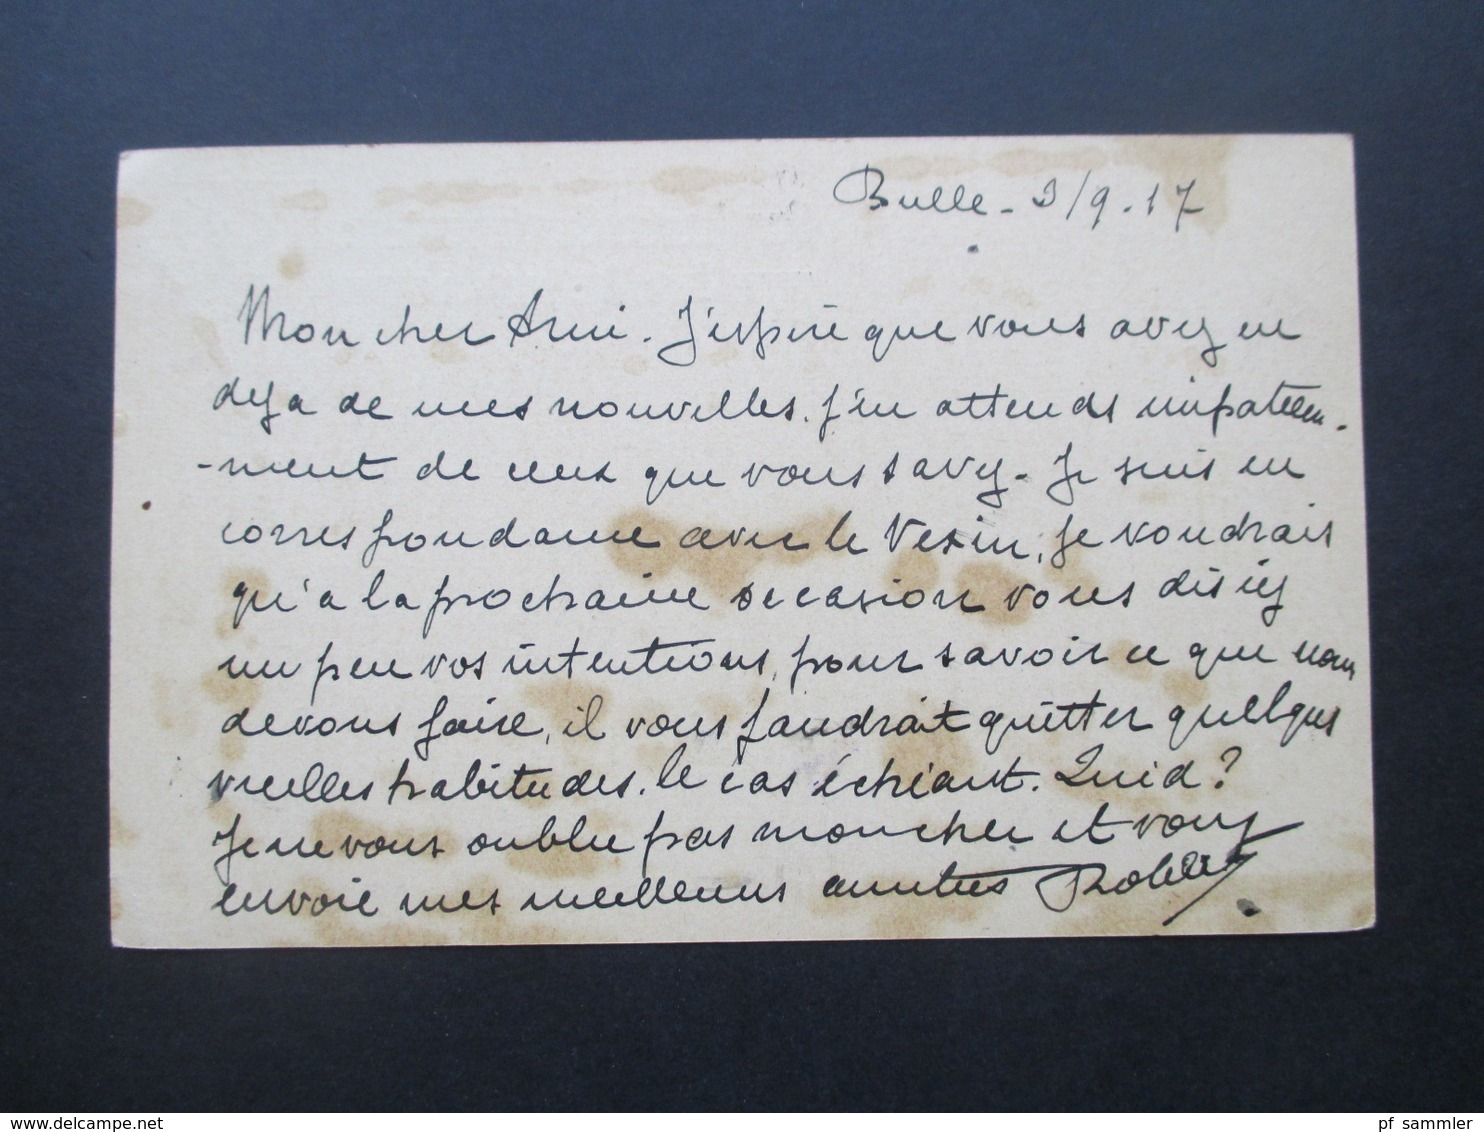 Bulle - 3/9.17
Mon cher Ami. J'espère que vous avez eu
deja de mes nouvelles. J'en attends impatiem-
-ment de ceux que vous savez. Je suis en
correspondance avec le Vexin, je voudrais
qu'a la prochaine occasion vous disiez
un peu vos intentions, pour savoir ce que nous
devons faire, il vous faudrait quitter quelques
vieilles habitudes, le cas échéant. Quid?
Je ne vous oublie pas mon cher et vous
envoie mes meilleures amitiés
pf sammler